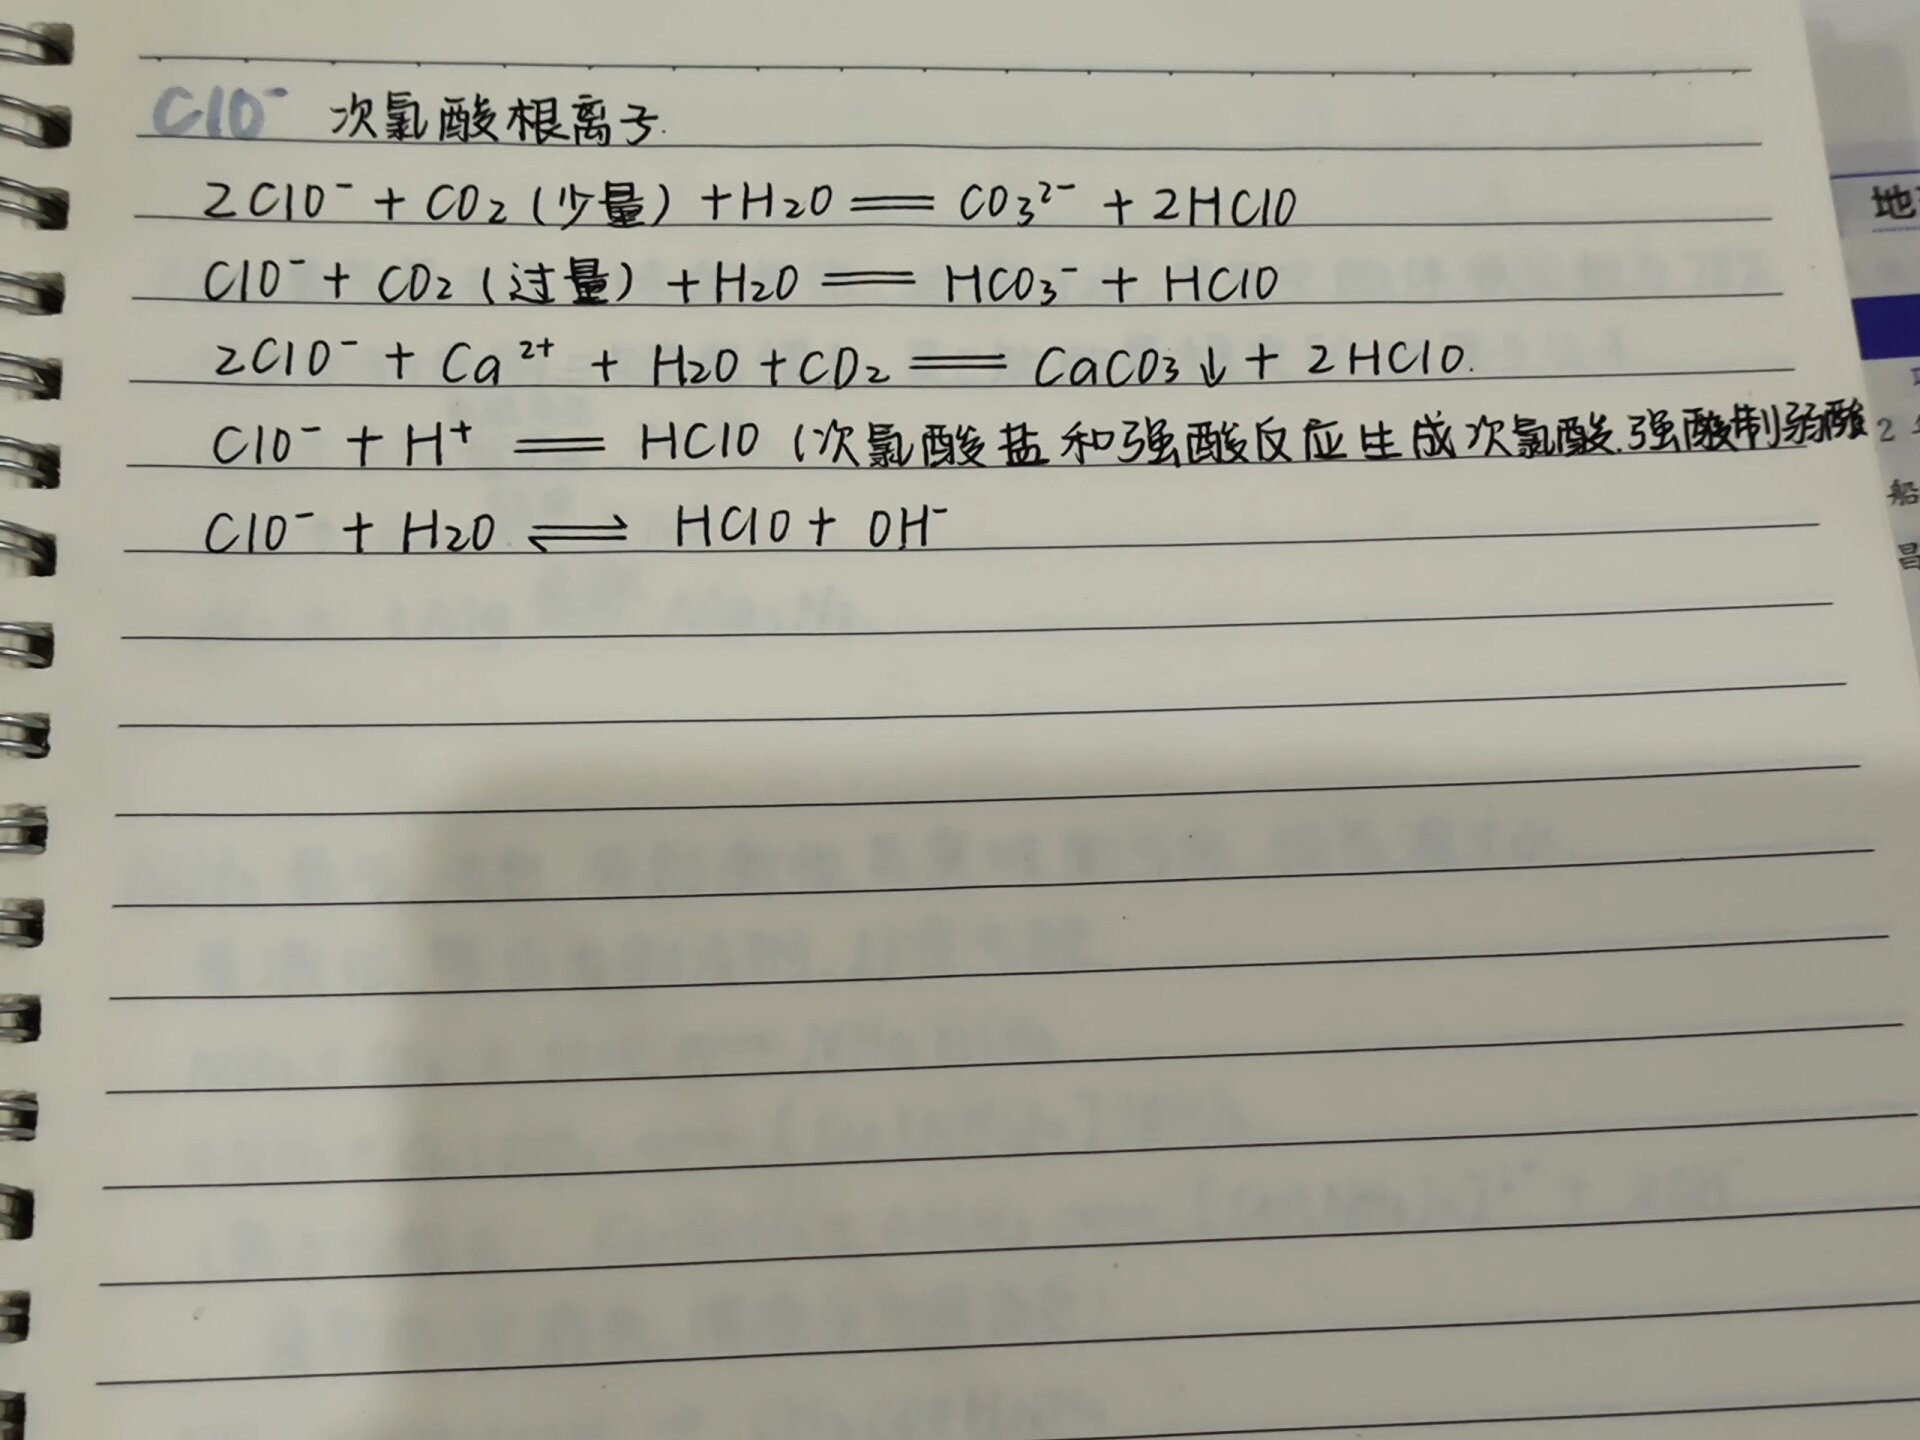 ClO⁻ 次氯酸根离子.
2ClO⁻ + CO₂(少量) + H₂O ══ CO₃²⁻ + 2HClO
ClO⁻ + CO₂(过量) + H₂O ══ HCO₃⁻ + HClO
2ClO⁻ + Ca²⁺ + H₂O + CO₂ ══ CaCO₃↓ + 2HClO.
ClO⁻ + H⁺ ══ HClO (次氯酸盐和强酸反应生成次氯酸.强酸制弱酸
ClO⁻ + H₂O ⇌ HClO + OH⁻
地
2
船
昌